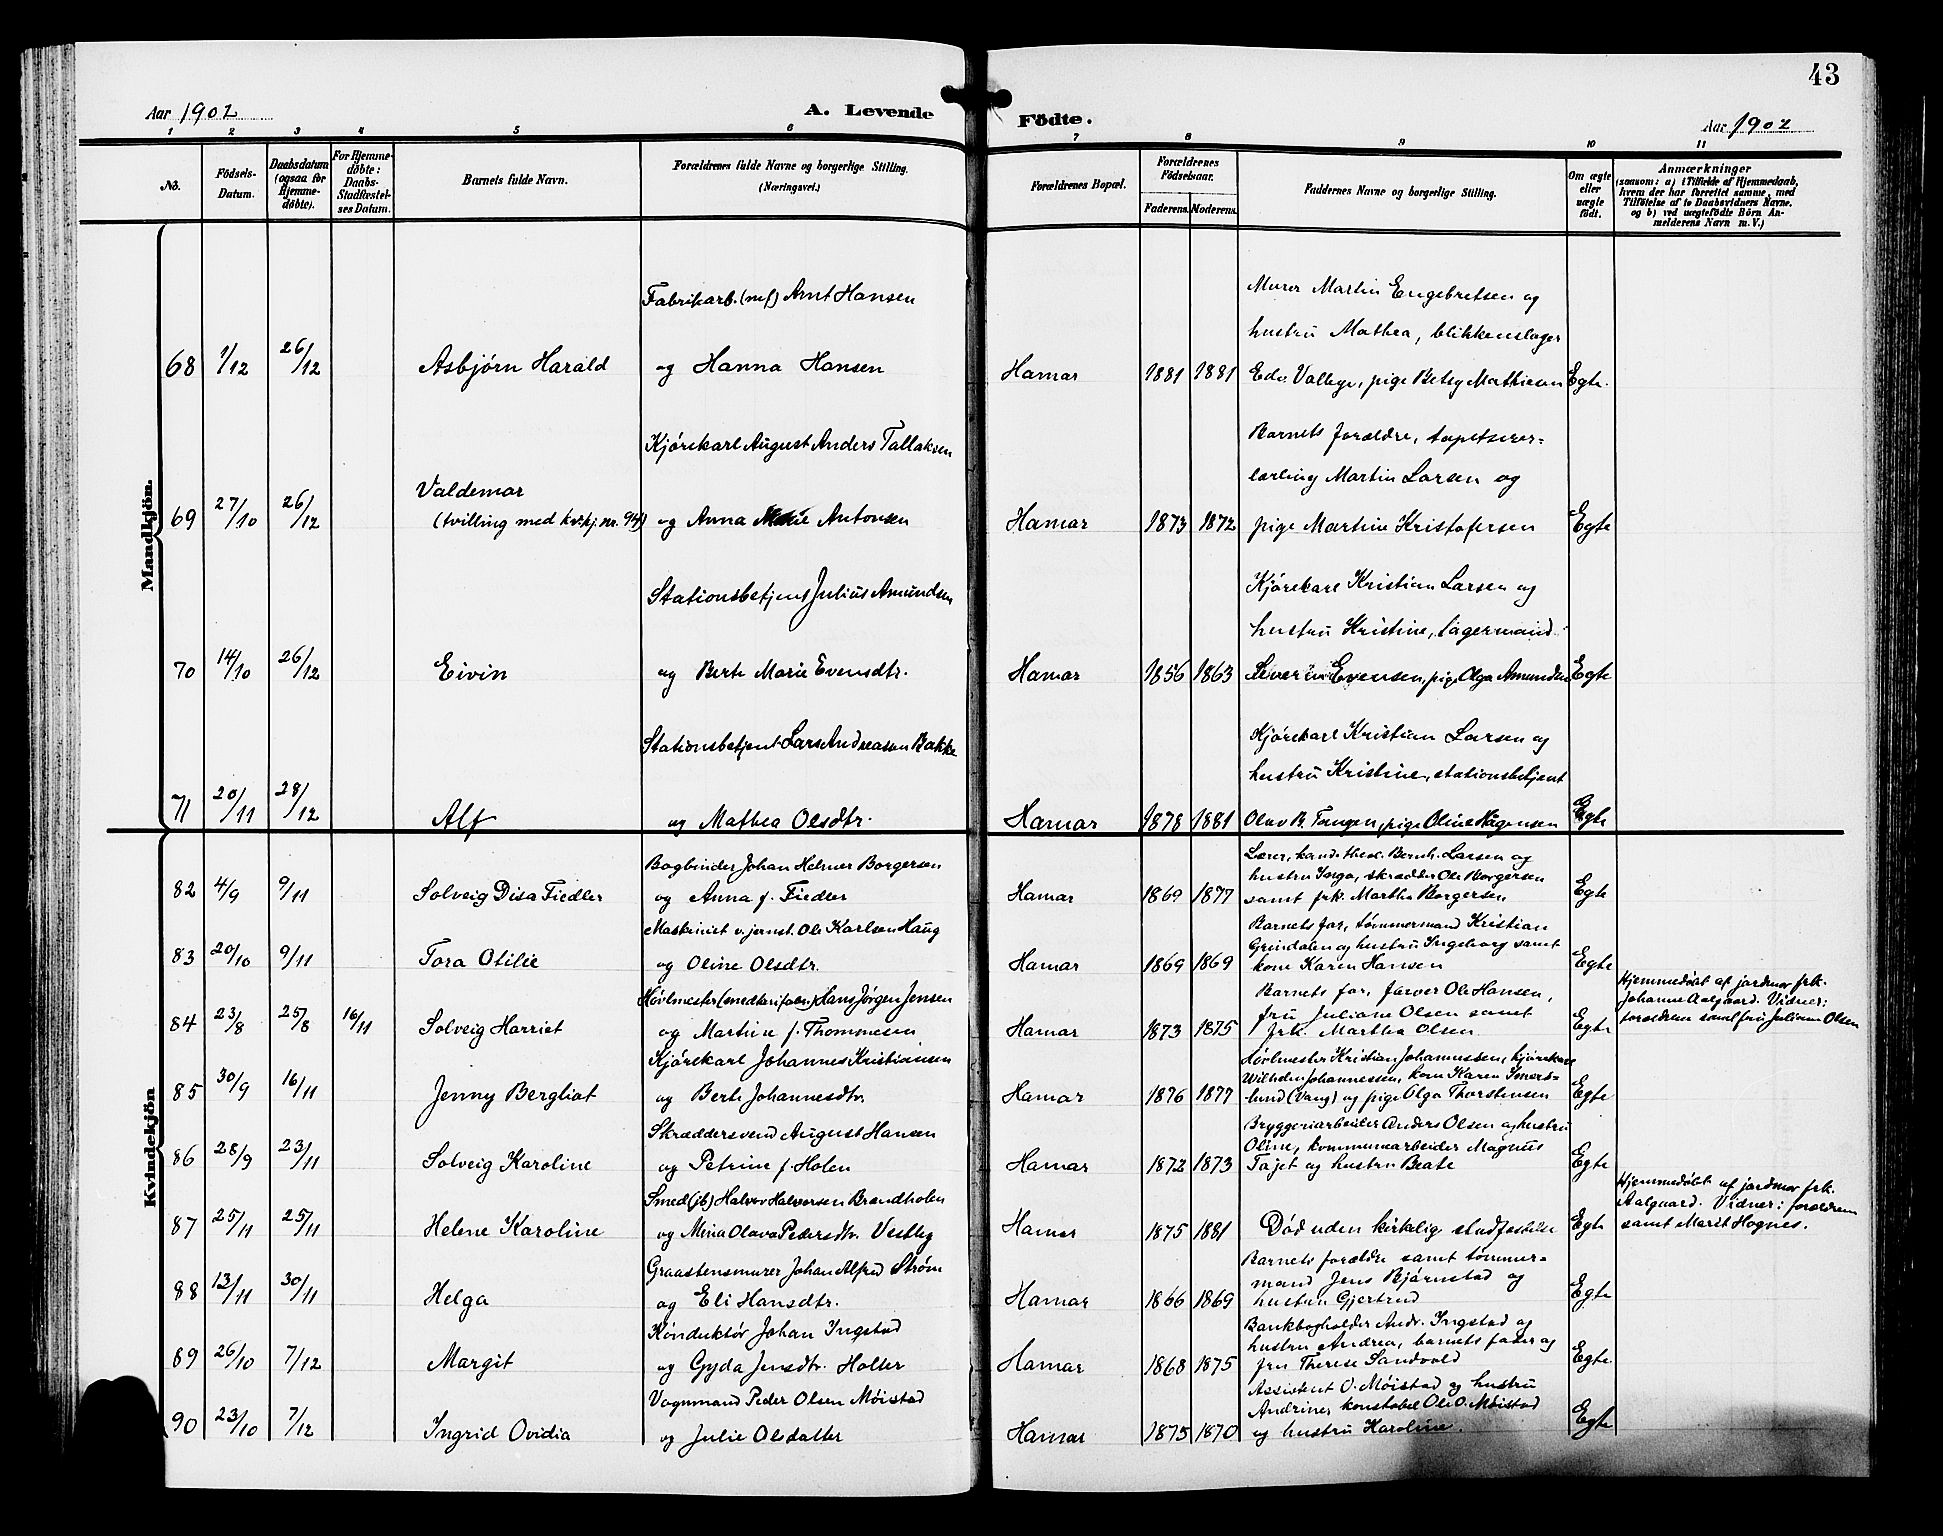 43
Aar 1902
A. Levende
Födte.
Aar 1902
1 2 3 4 5 6 7 8 9 10 11
No.
Födsels-
Datum.
Daabsdatum
(ogsaa for
Hjemme-
døbte).
For Hjemme-
døbte:
Daabs-
Stadfæstel-
ses Datum.
Barnets fulde Navn.
Forældrenes fulde Navne og borgerlige Stilling.
(Næringsvei.)
Forældrenes Bopæl.
Forældrenes
Födselsaar.
Faderens.
Moderens.
Faddernes Navne og borgerlige Stilling.
Om ægte
eller
uægte
födt.
Anmærkninger
(saasom: a) i Tilfælde af Hjemmedaab,
hvem der har forrettet samme, med
Tilföielse af to Daabsvidners Navne.
og b) ved uægtefödte Börn An-
melderens Navn m. V.)
Mandkjön.
Fabrikarb. (mf) Arnt Hansen
Murer Martin Engebretsen og
hustru Mathea, blikkenslager
68 1/12 26/12 Asbjørn Harald og Hanna Hansen Hamar 1881 1881 Edv. Valbye, pige Betsy Mathiesen Egte.
Kjørekarl August Anders Tallaksen
Barnets forældre, tapetserer-
lærling Martin Larsen og
Valdemar
69 27/10 26/12 (tvilling med kvkj. nr. 94) og Anna Marie Antonsen Hamar 1873 1872 pige Martine Kristofersen Egte
Stationsbetjent Julius Amundsen
Kjørekarl Kristian Larsen og
hustru Kristine, lagermand
70 14/10 26/12 Eivin og Berte Marie Evensdtr. Hamar 1856 1863 Severin Evensen, pige Olga Amundsen Egte
Stationsbetjent Lars Andreasen Bakke
Kjørekarl Kristian Larsen og
hustru Kristine, stationsbetjent
71 20/11 28/12 Alf og Mathea Olsdtr. Hamar 1878 1881 Olav B. Tangen, pige Oline Hagensen Egte
Kvindekjön
Bogbinder Johan Helmer Borgersen
Lærer, kand. theol. Bernh. Larsen og
hustru Inga, skrædder Ole Borgersen
82 4/9 9/11 Solveig Disa Fiedler og Anna f. Fiedler Hamar 1869 1877 samt frk. Martha Borgersen Egte
Maskinist v. jernst. Ole Karlsen Haug
Barnets far, tømmermand Kristian
Grindalen og hustru Ingeborg samt
83 20/10 9/11 Tora Otilie og Oline Olsdtr. Hamar 1869 1869 kone Karen Hansen Egte
Høvlmester (snedkerifabr.) Hans Jørgen Jensen
Barnets far, farver Ole Hansen,
fru Juliane Olsen samt
Hjemmedøbt af jordmor frk.
Johanne Aalgaard. Vidner:
forældrene samt fru Juliane Olsen
84 23/8 25/8 16/11 Solveig Harriet og Martine f. Thommesen Hamar 1873 1875 frk. Martha Olsen Egte
Kjørekarl Johannes Kristiansen
Høvlmester Kristian Johannessen, kjørekarl
Wilhelm Johannessen, kone Karen Smers-
85 30/9 16/11 Jenny Bergliot og Berte Johannesdtr. Hamar 1876 1877 lund (Vang) og pige Olga Thorstensen Egte
Skræddersvend August Hansen
Bryggeriarbeider Anders Olsen og hustru
Oline, kommunearbeider Magnus
86 28/9 23/11 Solveig Karoline og Petrine f. Holen Hamar 1872 1873 Tajet og hustru Beate Egte
Smed (jb) Halvor Halvorsen Brandholen
Hjemmedøbt af jordmor frk.
Aalgaard. Vidner: forældrene
samt Marit Hognes.
87 25/11 25/11 Helene Karoline og Mina Olava Pedersdtr. Vestby Hamar 1875 1881 Død uden kirkelig stadfæstelse Egte
Graastensmurer Johan Alfred Strøm
Barnets forældre samt tømmer-
mand Jens Bjørnstad og
88 13/11 30/11 Helga og Eli Hansdtr. Hamar 1866 1869 hustru Gjertrud Egte
Konduktør Johan Ingstad
Bankbogholder Andr. Ingstad og
hustru Andrea, barnets fader og
89 26/10 7/12 Margit og Gyda Jensdtr. Holter Hamar 1868 1875 fru Therese Sandvold Egte
Vognmand Peder Olsen Møistad
Assistent O. Møistad og hustru
Andrine, konstabel Ole O. Møistad
90 23/10 7/12 Ingrid Ovidia og Julie Olsdatter Hamar 1875 1870 og hustru Karoline. Egte